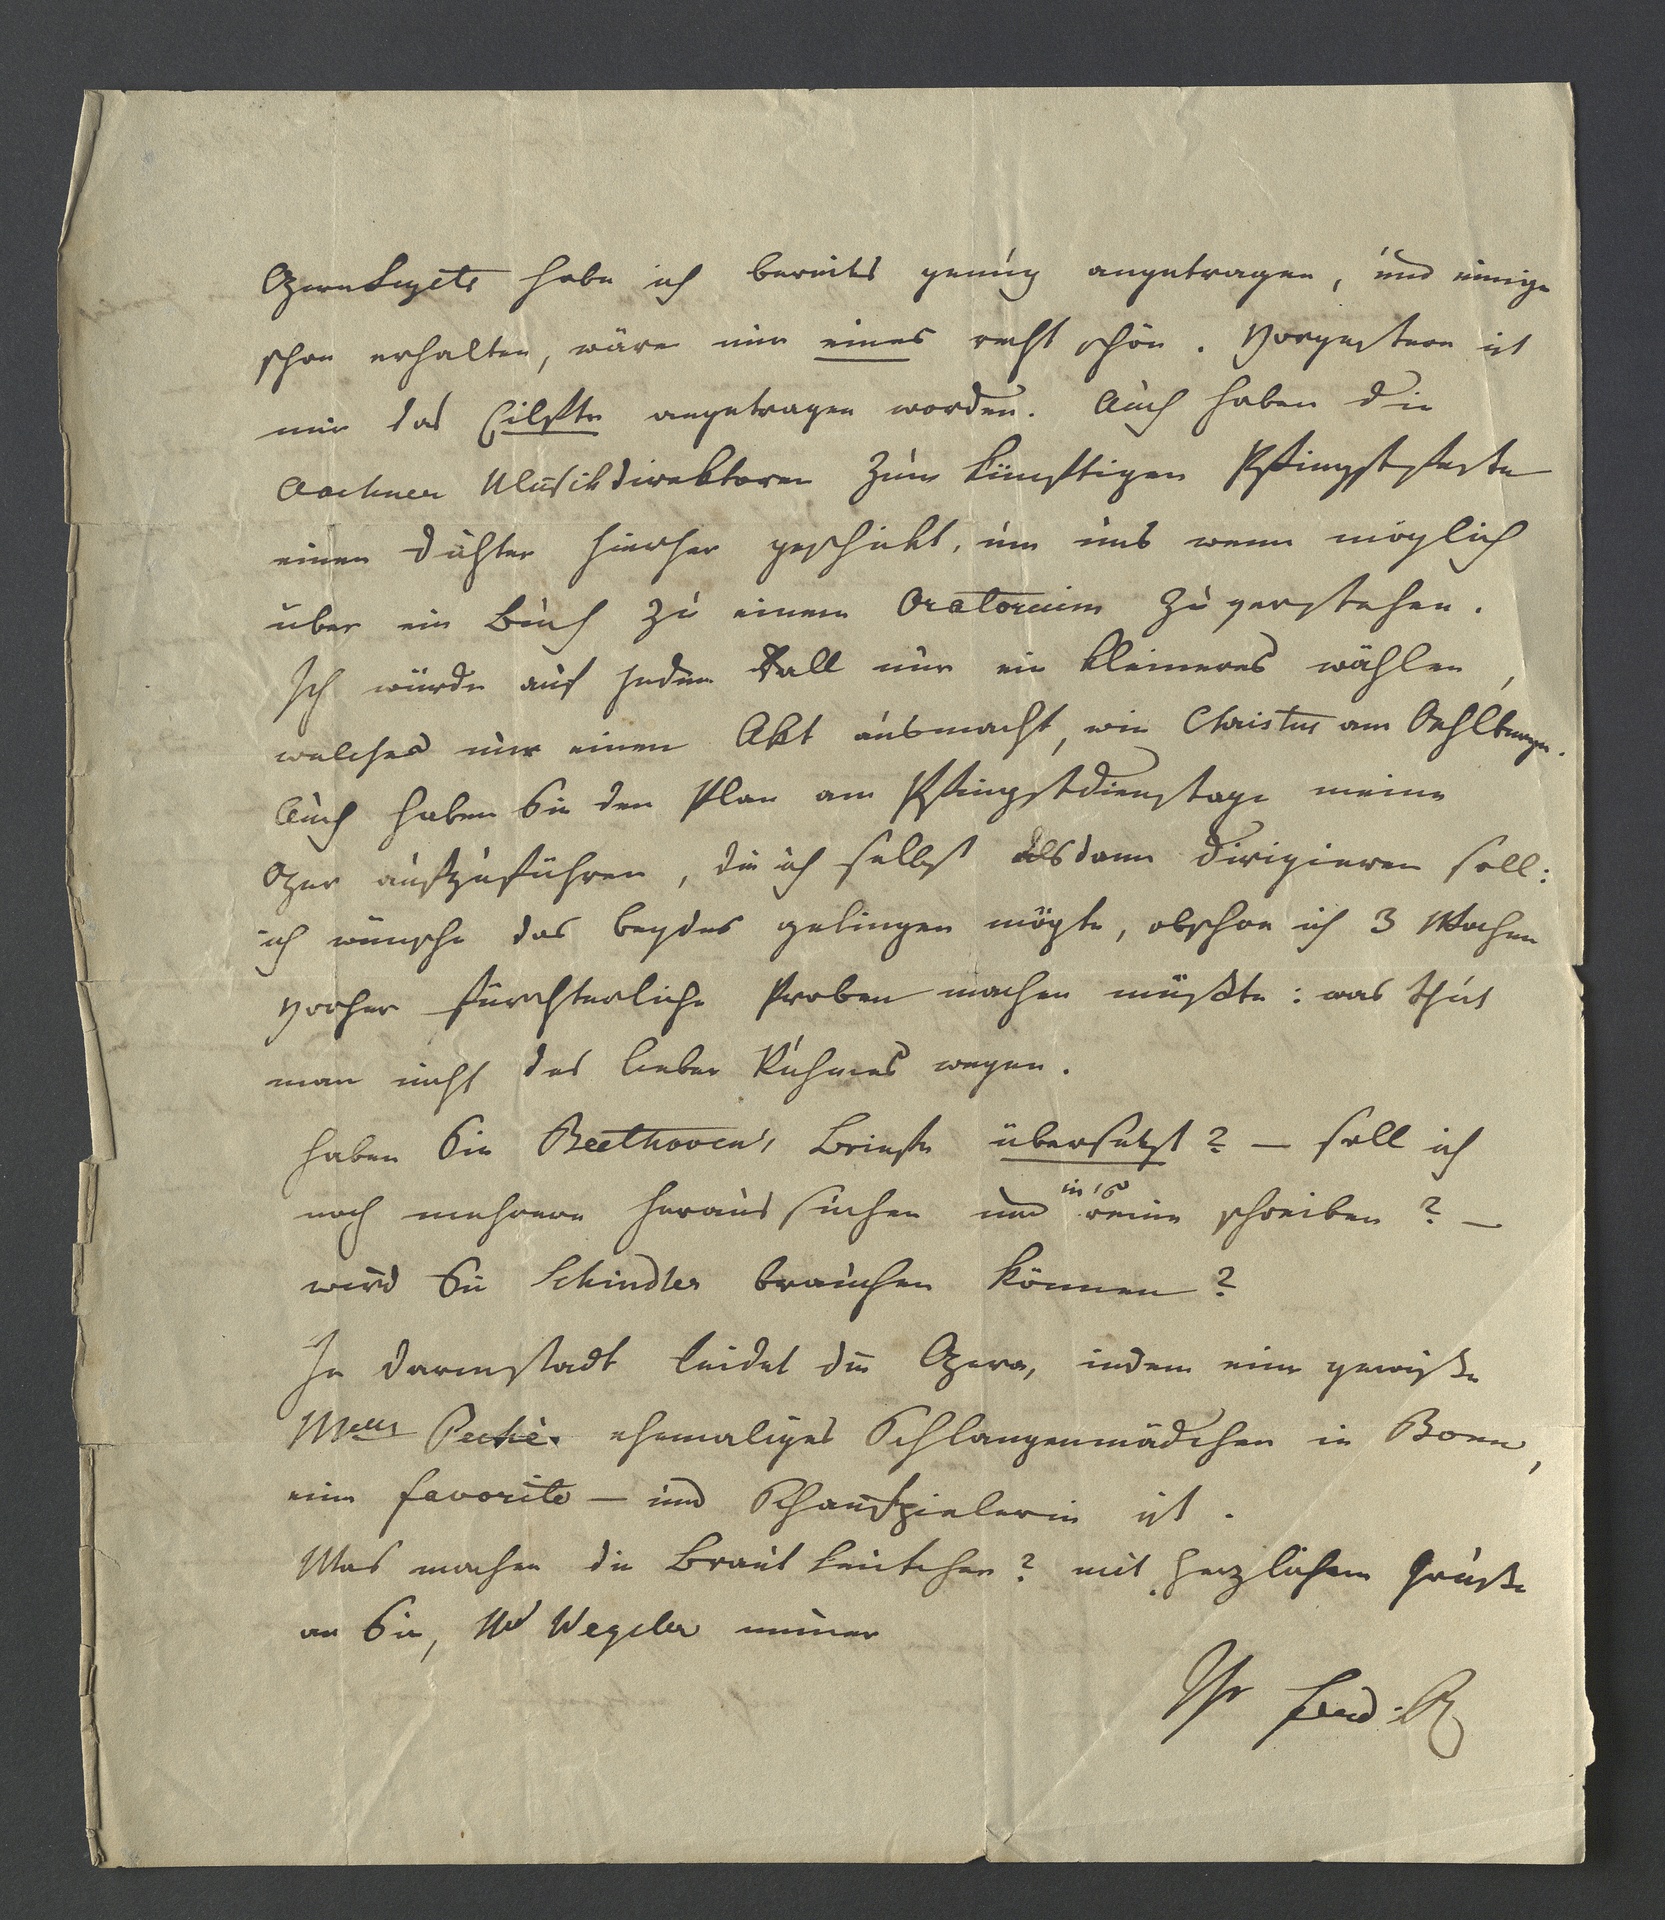 Opern Sujets habe ich bereits genug angetragen, und einige
schon erhalten, wäre nur eines recht schön. Vorgestern ist
mir das Eilfte angetragen worden. Auch haben die
Aachner Musikdirektoren zum künftigen Pfingstfeste
einen Dichter hierher geschickt, um uns wenn möglich
über ein Buch zu einem Oratorium zu verstehen.
Ich würde auf jeden Fall nur ein kleineres wählen,
welches nur einen Akt ausmacht, wie Christus am Oehlberge.
Auch haben Sie den Plan am Pfingstdienstage meine
Oper aufzuführen, die ich selbst alsdann dirigieren soll:
ich wünsche das beydes gelingen mögte, obschon ich 3 Wochen
vorher fürchterliche Proben machen müßte: was thut
man nicht des lieben Ruhmes wegen.
haben Sie Beethoven's Briefe übersetzt? — soll ich
noch mehrere heraus suchen und in's reine schreiben? —
wird Sie Schindler brauchen können?
In Darmstadt leidet die Opera, indem eine gewiße
Melle Peché ehemaliges Schlangenmädchen in Bonn,
eine favorite — und Schauspielerin ist.
Was machen die Braut Leutchen? mit herzlichem Gruße
an Sie, Wegeler immer
Ihr Ferd: R